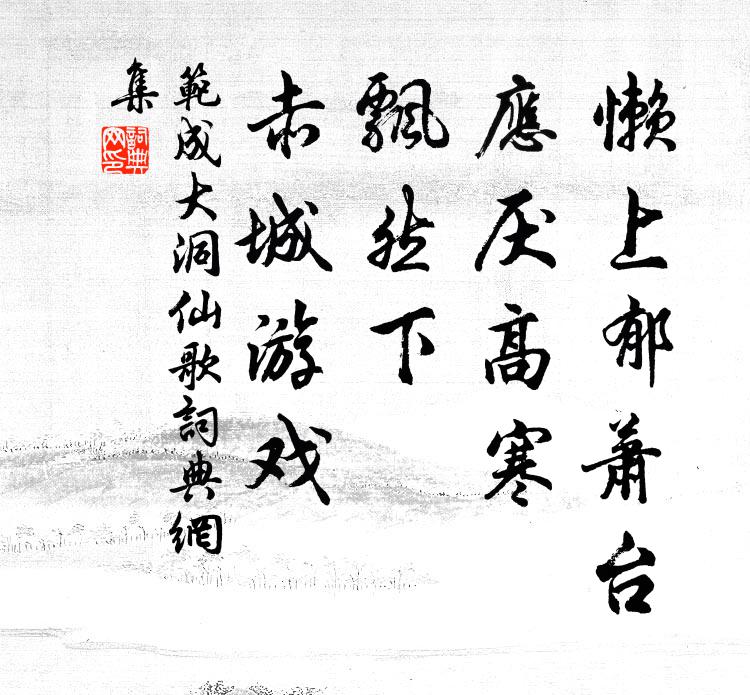 懒上郁萧台
應厌高寒
飄然下
赤城游戏
範成大洞仙歌詞典網
集
詞典网印